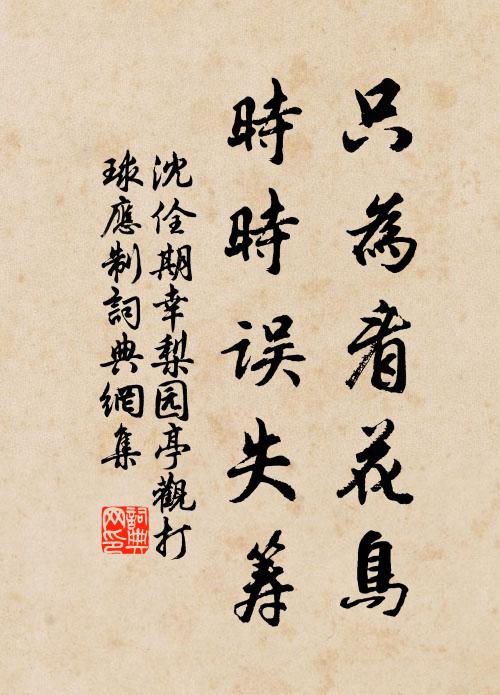 只為看花鳥
時時误失筹
沈佺期幸梨园亭觀打
球應制詞典網集
詞典网印